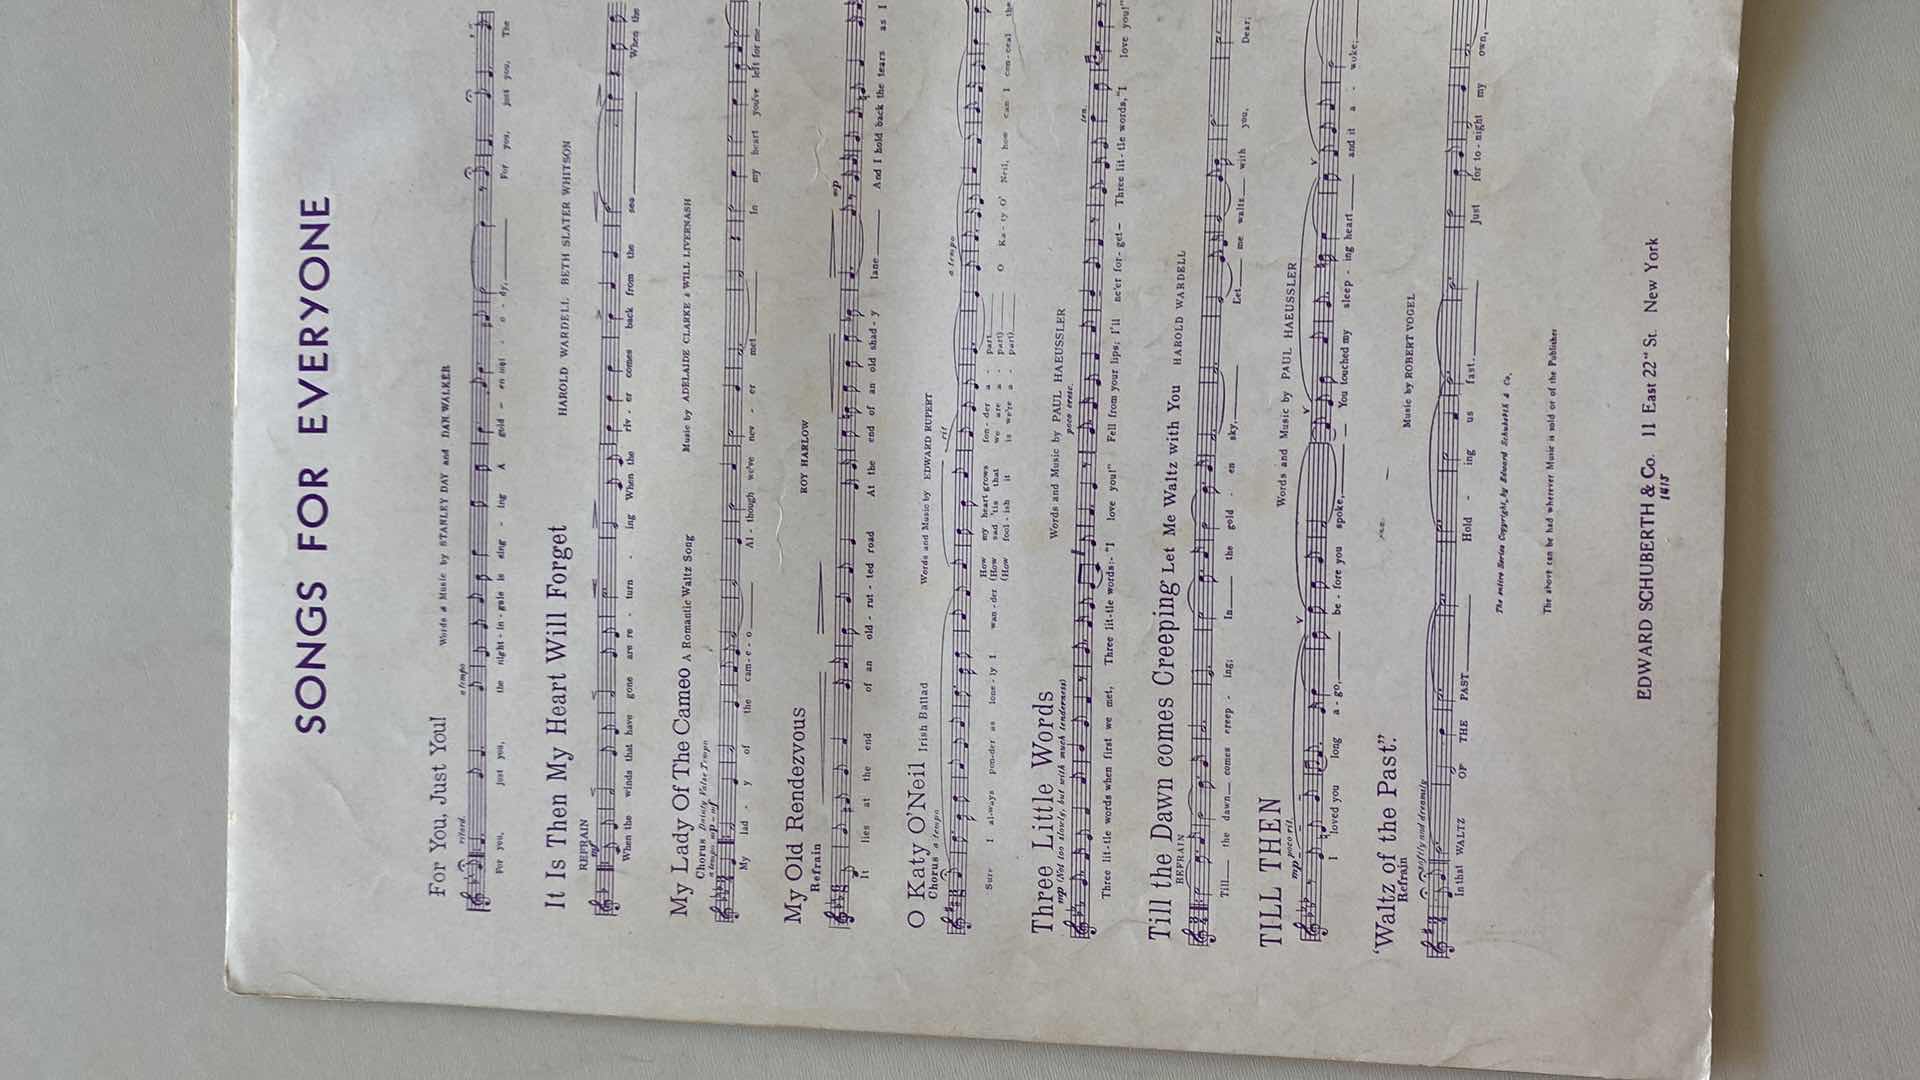 SONGS FOR EVERYONE
For You, Just You!
Words & Music by STANLEY DAY and DAN WALKER
ritard. a tempo
For you, just you, the night - in - gale is sing - ing A gold - en mel - o - dy, For you, just you, The
It Is Then My Heart Will Forget
HAROLD WARDELL BETH SLATER WHITSON
REFRAIN
mf
When the winds that have gone are re - turn - ing When the riv - er comes back from the sea When the
My Lady Of The Cameo A Romantic Waltz Song
Music by ADELAIDE CLARKE & WILL LIVERNASH
Chorus Dainty Valse Tempo
a tempo mp - mf
My lad - y of the cam - e - o Al - though we've nev - er met In my heart you've left for me
My Old Rendezvous
ROY HARLOW
Refrain
mp
It lies at the end of an old - rut - ted road At the end of an old shad - y lane And I hold back the tears as I
O Katy O'Neil Irish Ballad
Words and Music by EDWARD RUPERT
Chorus a tempo rit a tempo
Sure I al-ways pon-der as lone-ly I wan-der How my heart grows fon-der a - part O Ka-ty O' Neil, how can I con-ceal the
(How sad 'tis that we are a - part)
(How fool-ish it is we're a - part)
Three Little Words
Words and Music by PAUL HAEUSSLER
mp (Not too slowly, but with much tenderness) poco cresc. ten.
Three lit-tle words when first we met, Three lit-tle words:- "I love you!" Fell from your lips; I'll ne'er for-get- Three lit-tle words, "I love you!"
Till the Dawn comes Creeping Let Me Waltz with You HAROLD WARDELL
REFRAIN
Till the dawn comes creep - ing; In the gold - en sky, Let me waltz with you, Dear;
TILL THEN
Words and Music by PAUL HAEUSSLER
mp poco rit.
I loved you long a - go, be - fore you spoke, You touched my sleep - ing heart and it a - woke;
"Waltz of the Past".
Music by ROBERT VOGEL
Refrain
Softly and dreamily
In that WALTZ OF THE PAST Hold - ing us fast. Just for to-night my own,
The entire Series Copyright, by Edward Schuberth & Co.
The above can be had wherever Music is sold or of the Publisher
EDWARD SCHUBERTH & Co. 11 East 22nd St. New York
1415